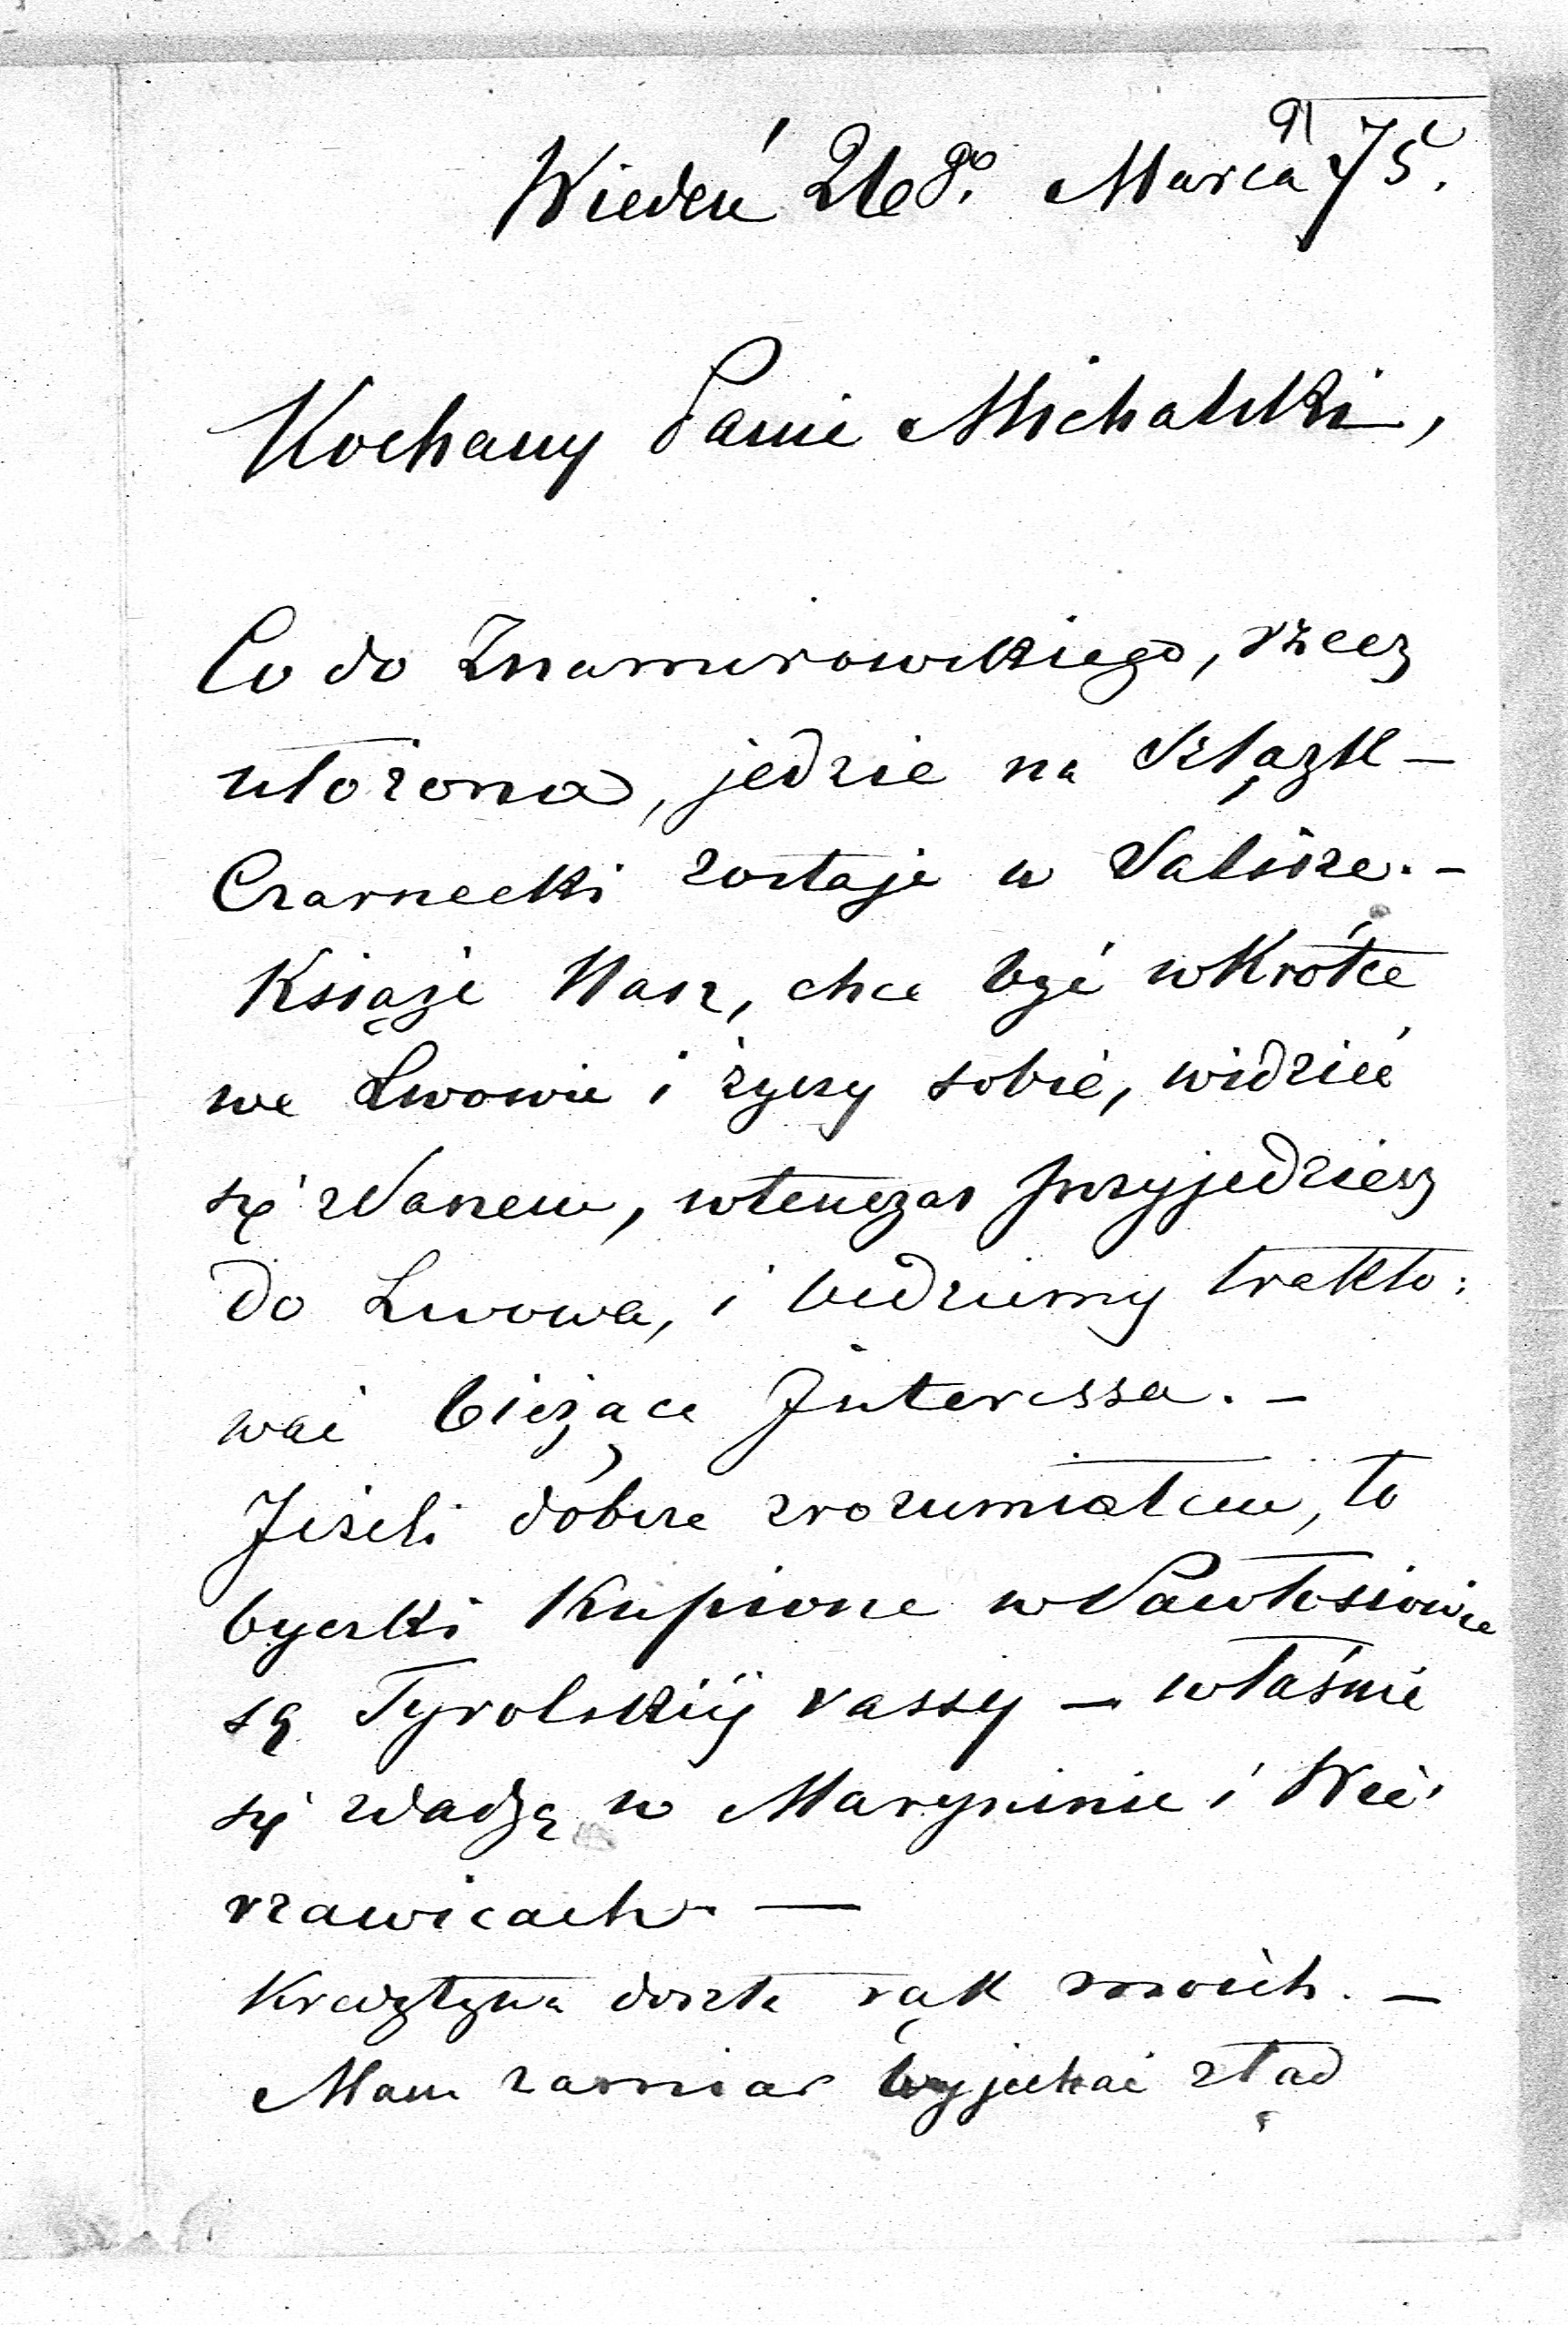 91
Wiedeń 26go. Marca 75.
Kochany Panie Michalski,
Co do Znamirowskiego, rzecz
ułożona, jedzie na Szląsk –
Czarnecki zostaje w Salisze. –
Książe Nasz, chce być wkrótce
we Lwowie i życzy sobie, widzieć
się z Panem, wtenczas przyjedziesz
do Lwowa, i bedziemy trakto:
wać bieżące Interessa. –
Jeżeli dobrze zrozumiałem, to
byczki kupione w Pawłosiowie
są Tyrolskiéj rassy – właśnie
się zdadzą w Maryninie i Wie:
rzawicach. —
Kredytywa doszła rąk moich. –
Mam zamiar wyjechać ztąd